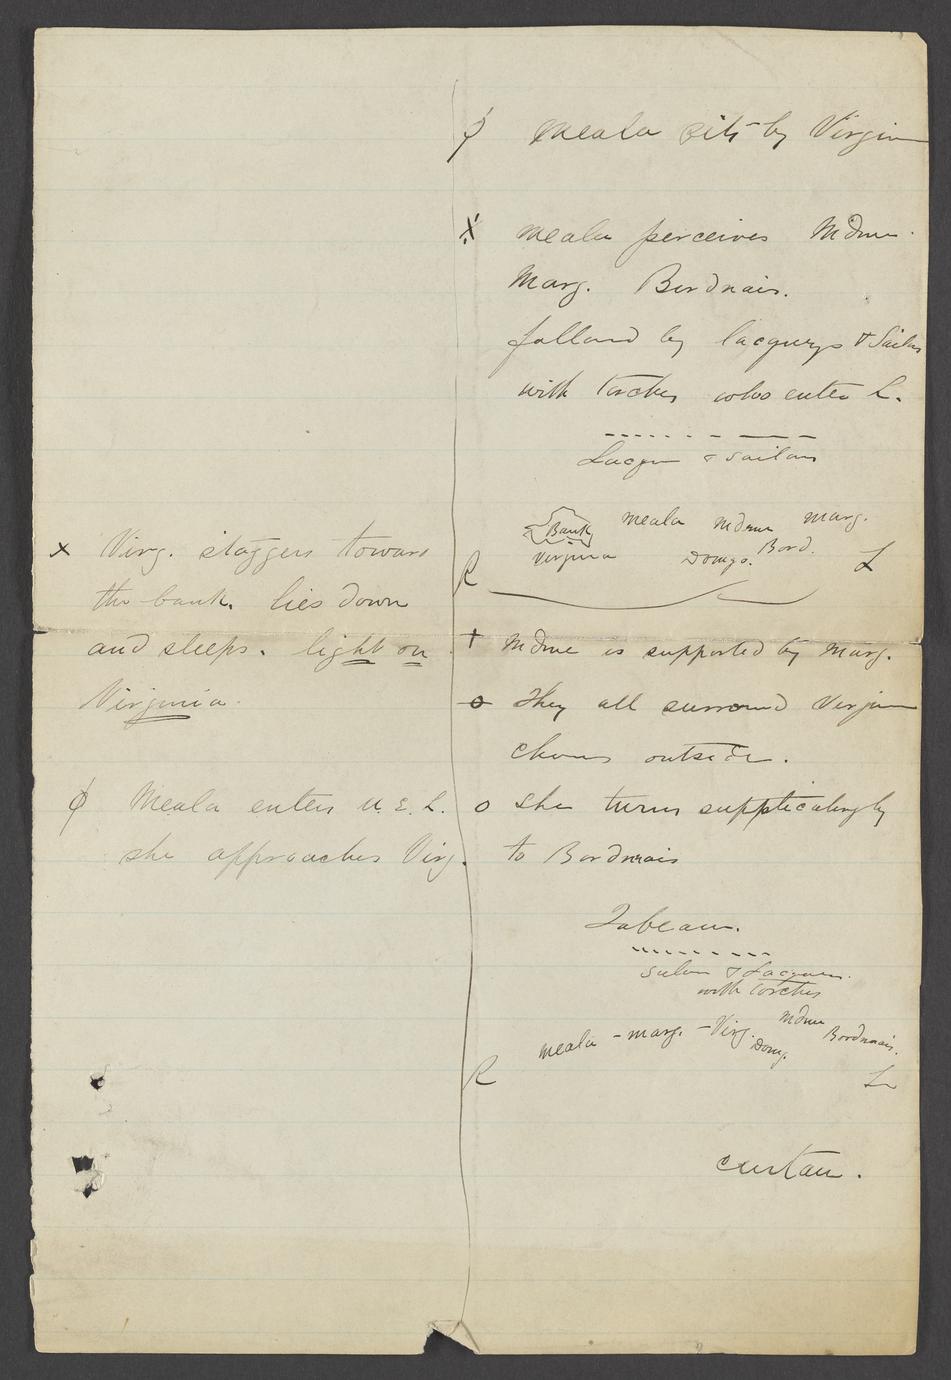 x Virg. staggers toward
the bank. lies down
and sleeps. light on
Virginia.
φ Meala enters U.E.L.
she approaches Virg.
φ Meala sits by Virgin
x Meala perceives Mdme.
Marg. Bordnais.
followd by lacqueys & Sailors
with torches who enter L.
Lacqu & Sailors
Bank Meala Mdme Marg.
Virginia Domgo. Bord.
R L
+ Mdme is supported by Marg.
o They all surround Virginia
chorus outside.
o she turns supplicatingly
to Bordnais
Tableau.
sailors & Lacqueys.
with torches
Meala - Marg. - Virg. Mdme
Domg. Bordnais.
R L
curtain.